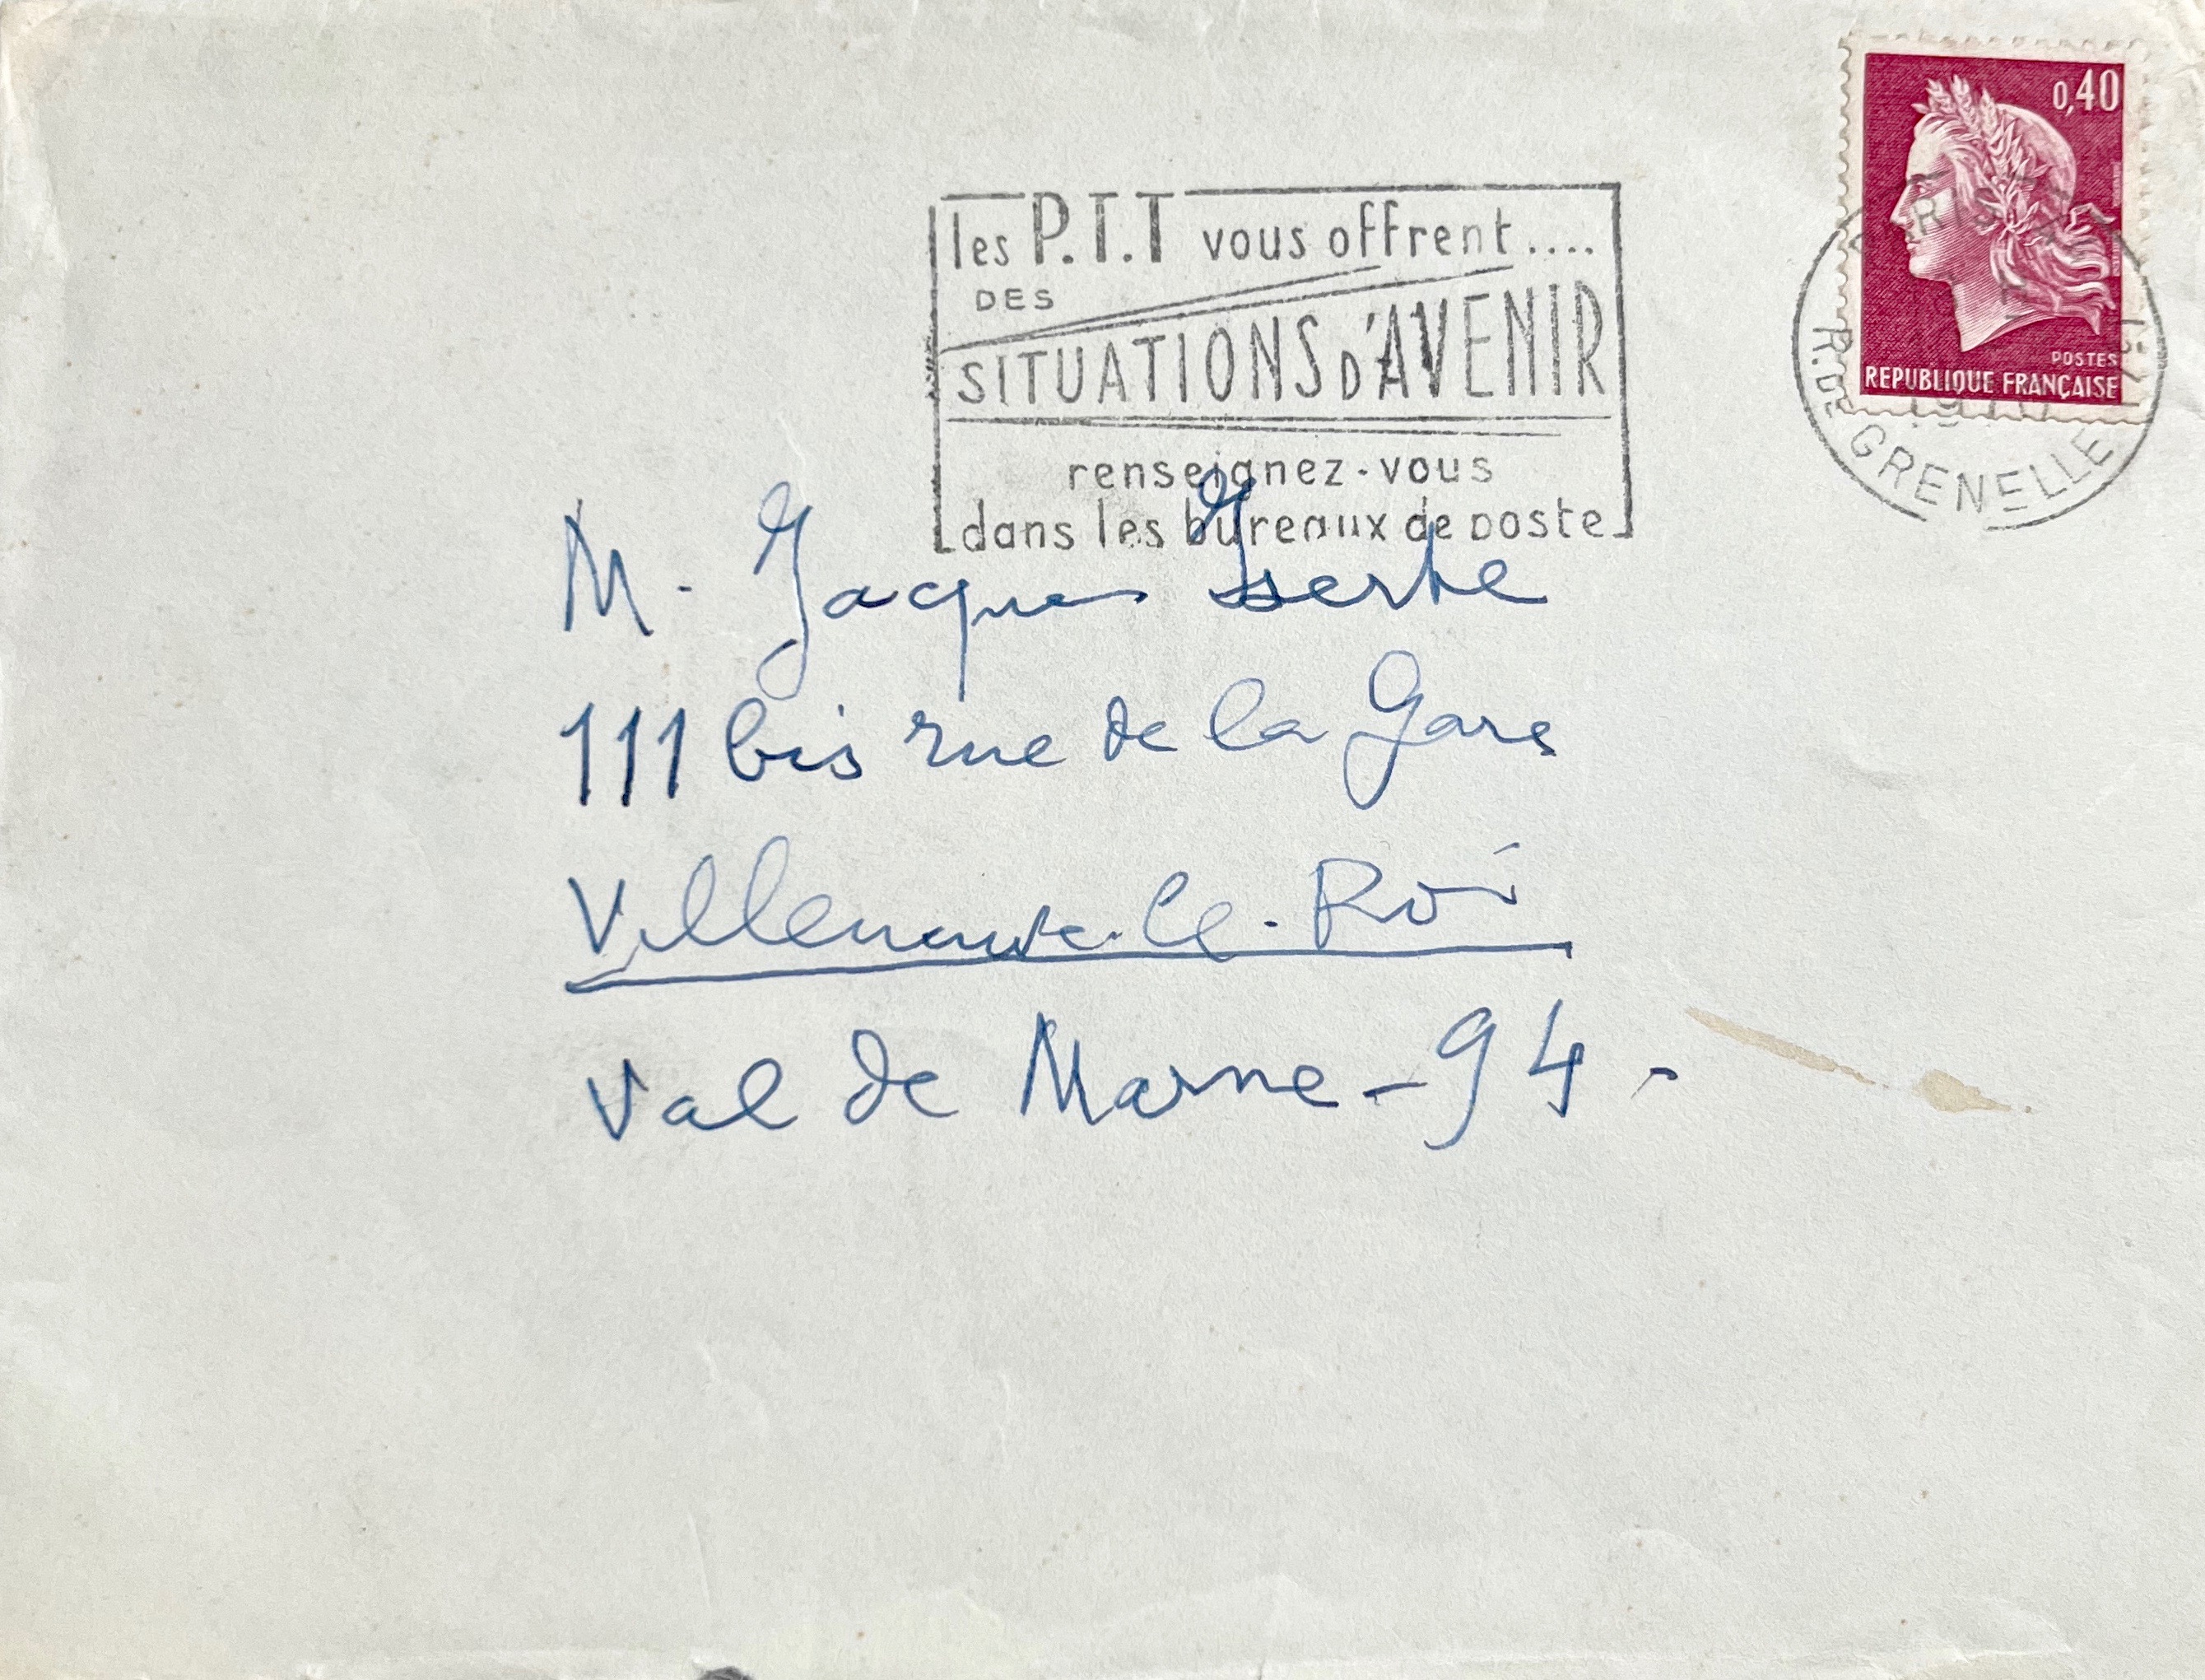 0,40
POSTES
REPUBLIQUE FRANÇAISE
R. DE GRENELLE
les P.T.T vous offrent....
DES
SITUATIONS D'AVENIR
renseignez-vous
dans les bureaux de poste
M. Jacques
111 bis rue de la Gare
Villeneuve-le-Roi
Val de Marne - 94 -